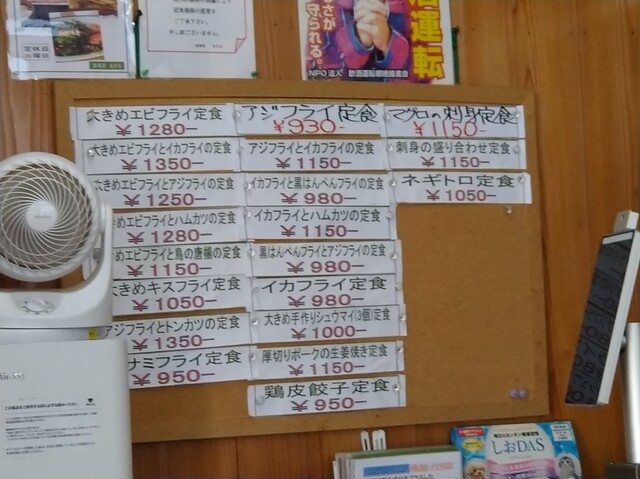 定休日
火曜日
運転
さが
守られる。
NPO法人
大きめエビフライ定食
¥1280-
大きめエビフライとイカフライの定食
¥1350-
大きめエビフライとアジフライの定食
¥1250-
大きめエビフライとハムカツの定食
¥1280-
大きめエビフライと鳥の唐揚の定食
¥1150-
大きめキスフライ定食
¥1050-
アジフライとトンカツの定食
¥1350-
ナミフライ定食
¥950-
アジフライ定食
¥930-
アジフライとイカフライの定食
¥1150-
イカフライと黒はんぺんフライの定食
¥980-
イカフライとハムカツの定食
¥1150-
黒はんぺんフライとアジフライの定食
¥980-
イカフライ定食
¥980-
大きめ手作りシュウマイ(3個)定食
¥1000-
厚切りポークの生姜焼き定食
¥1150-
鶏皮餃子定食
¥950-
マグロの刺身定食
¥1150-
刺身の盛り合わせ定食
¥1150-
ネギトロ定食
¥1050-
しおDAS